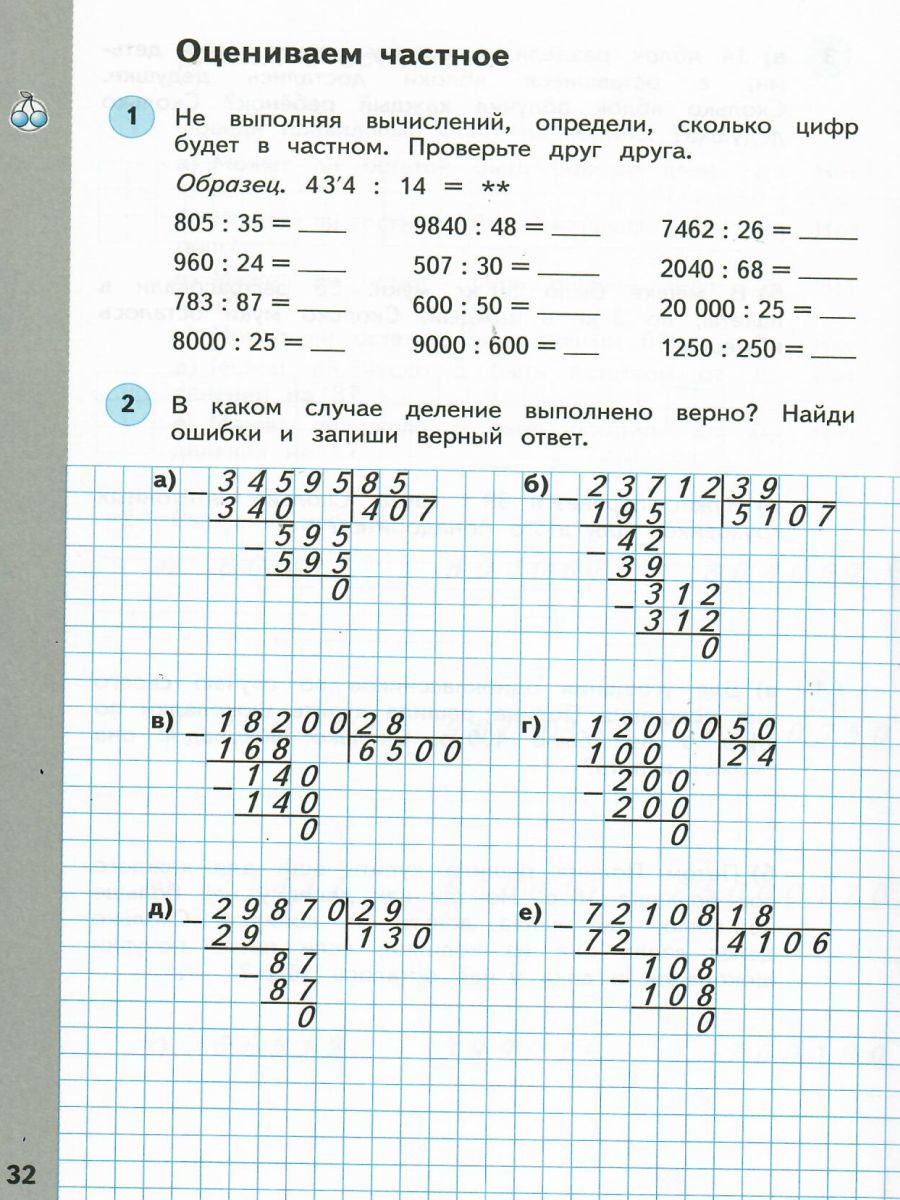 Оцениваем частное
1 Не выполняя вычислений, определи, сколько цифр
будет в частном. Проверьте друг друга.
Образец. 43′4 : 14 = **
805 : 35 = ___ 9840 : 48 = ___ 7462 : 26 = ___
960 : 24 = ___ 507 : 30 = ___ 2040 : 68 = ___
783 : 87 = ___ 600 : 50 = ___ 20 000 : 25 = ___
8000 : 25 = ___ 9000 : 600 = ___ 1250 : 250 = ___
2 В каком случае деление выполнено верно? Найди
ошибки и запиши верный ответ.
а) – 34595 85
340 407
– 595
595
0
б) – 23712 39
195 5107
– 42
39
– 312
312
0
в) – 18200 28
168 6500
– 140
140
0
г) – 12000 50
100 24
– 200
200
0
д) – 29870 29
29 130
– 87
87
0
е) – 72108 18
72 4106
– 108
108
0
32